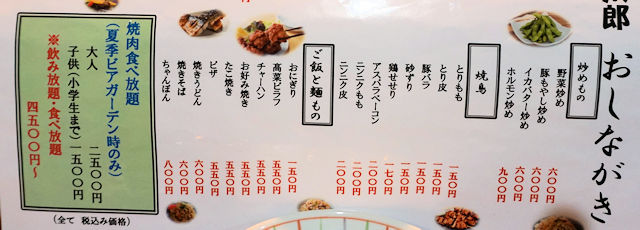 郎
おしながき
炒めもの
野菜炒め 六〇〇円
豚もやし炒め 六〇〇円
イカバター炒め 六〇〇円
ホルモン炒め 九〇〇円
焼鳥
とりもも 一五〇円
とり皮 一五〇円
豚バラ 一五〇円
砂ずり 一五〇円
鶏せせり 一七〇円
アスパラベーコン 二〇〇円
ニンニクもも 二〇〇円
ニンニク皮 二〇〇円
ご飯と麺もの
おにぎり 一五〇円
高菜ピラフ 五五〇円
チャーハン 五五〇円
お好み焼き 五五〇円
たこ焼き 五五〇円
ピザ 五五〇円
焼きうどん 六〇〇円
焼きそば 六〇〇円
ちゃんぽん 八〇〇円
焼肉食べ放題
(夏季ビアガーデン時のみ)
大人 二五〇〇円
子供(小学生まで)一五〇〇円
※飲み放題・食べ放題
四五〇〇円〜
(全て 税込み価格)